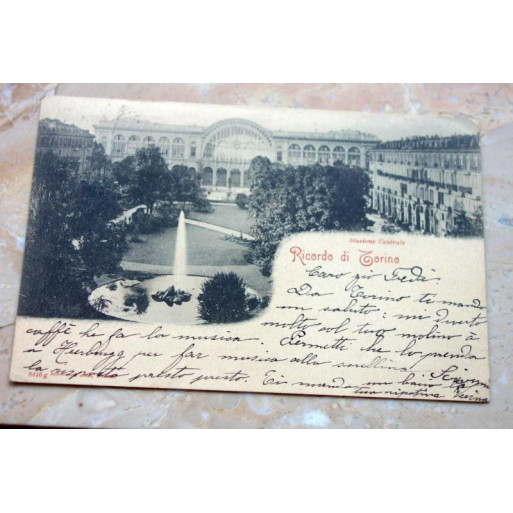 Stazione Centrale
Ricordo di Torino
Caro zio Fedi
Da Torino te manda
un saluto: mi
molto col tuo molino à
caffè che fa la musica. Permetti che lo prenda
a per far musica alla sorellina
la aspetto presto presto. Ti manda un bacio
tua nipotina
8416 g